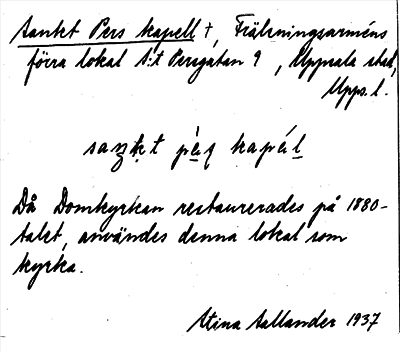 Sankt Pers kapell †, Frälsningsarméns
förra lokal S:t Persgatan 9, Uppsala stad,
Upps. l.
saŋkt pèʂ kapél
Då Domkyrkan restaurerades på 1880-
talet, användes denna lokal som
kyrka.
Stina Sallander 1937